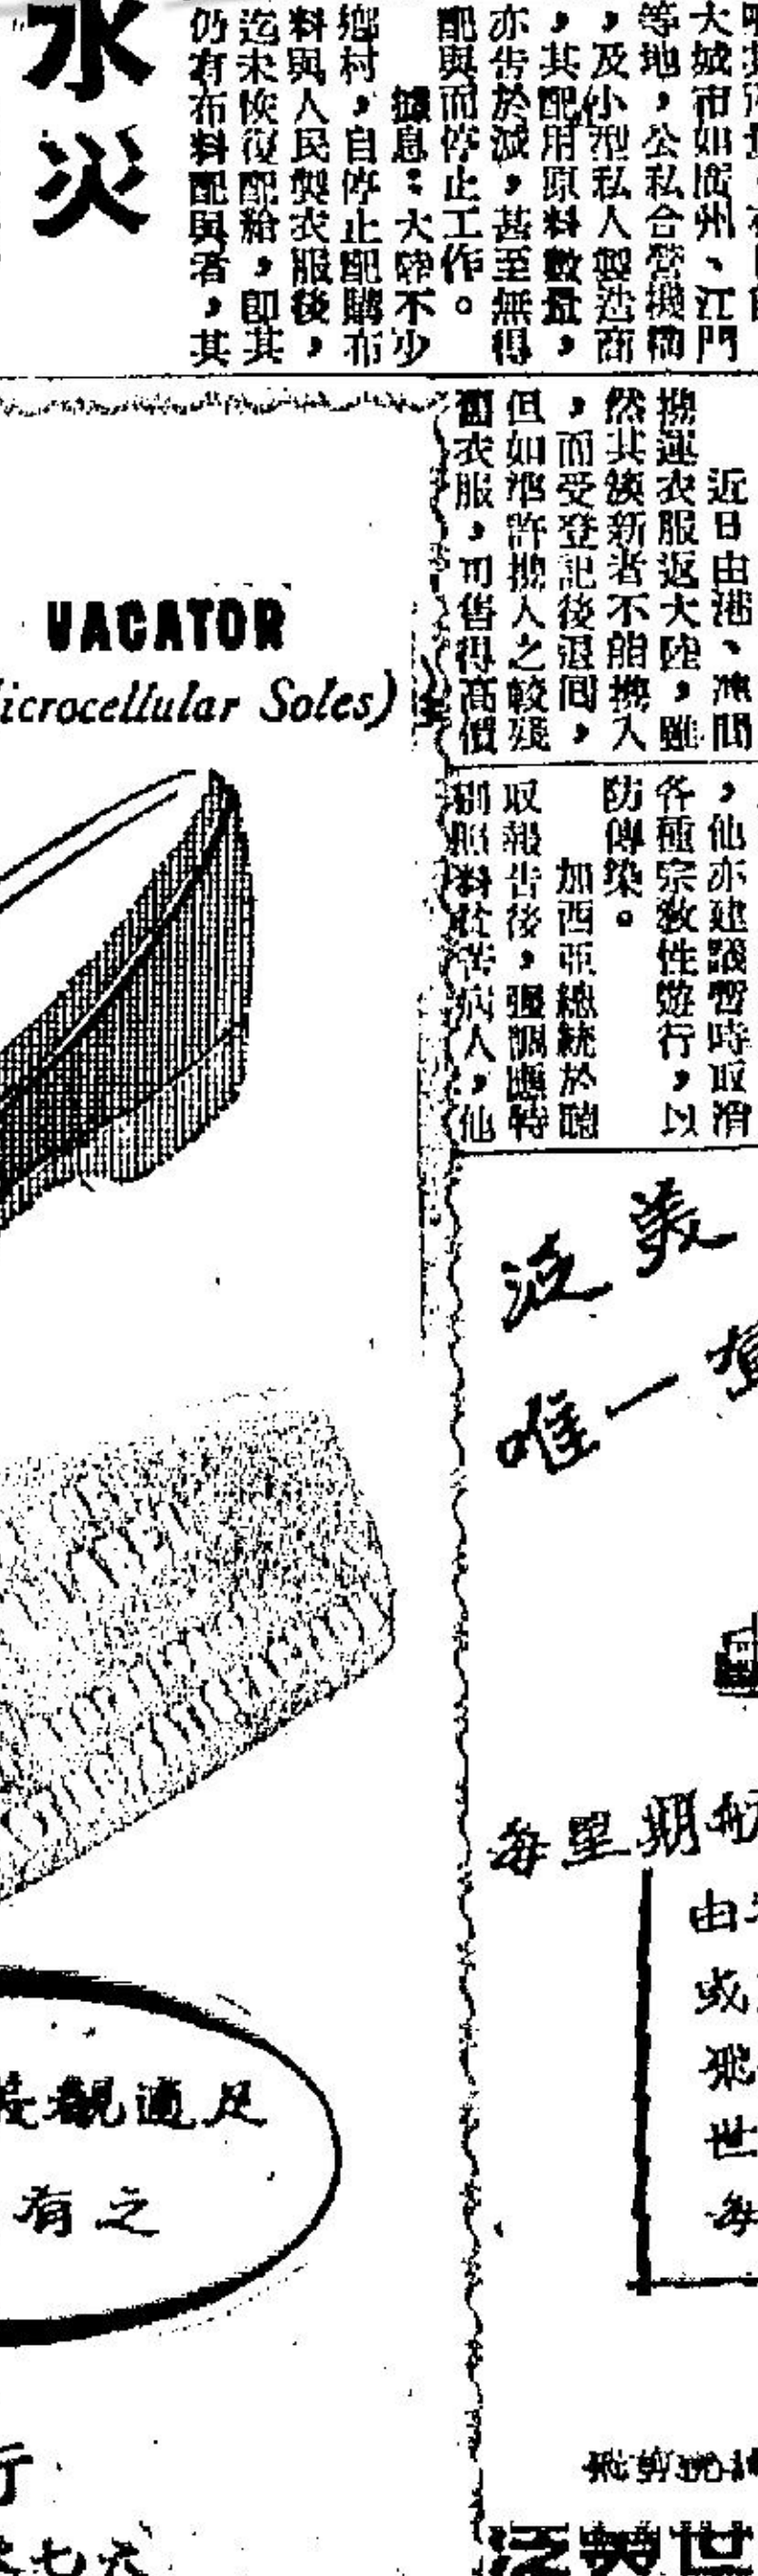 大城市如廣州、江門
等地，公私合營機構
，及小型私人製造商
，其配用原料數量，
亦告於減，甚至無得
配與而停止工作。
據息：大陸不少
鄉村，自停止配購布
料與人民製衣服後，
迄未恢復配給，卽其
仍有布料配與者，其
水災
近日由港、澳間
攜運衣服返大陸，雖
然其簇新者不能攜入
，而受登記後退回，
但如准許攜入之較殘
舊衣服，可售得高價
，他亦建議暫時取消
各種宗教性遊行，以
防傳染。
加西亞總統於聽
取報告後，強調應特
別照料於苦病人，他
VACATOR
icrocellular Soles)
觀適足
有之
行
七六
泛美
唯一
每星期航
由
或
飛
世
每
泛美世